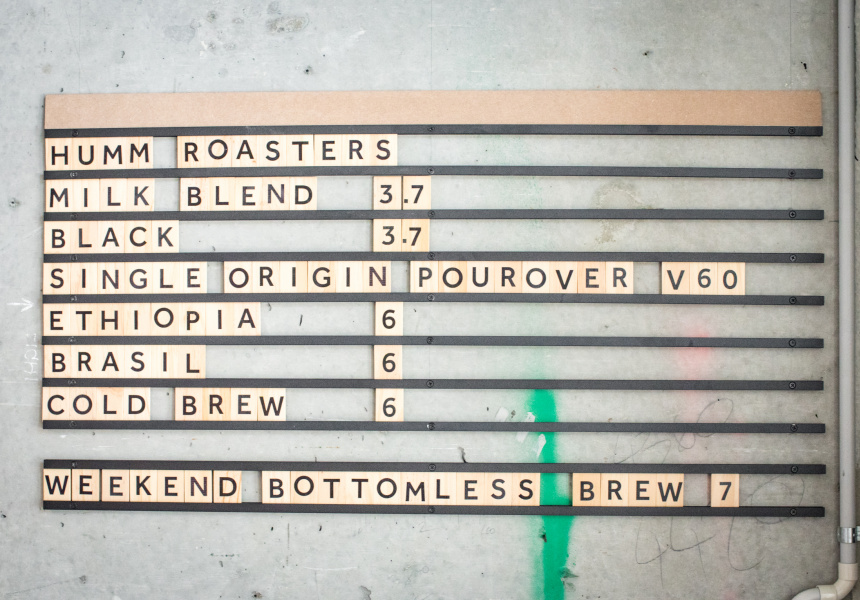 HUMM ROASTERS
MILK BLEND 3.7
BLACK 3.7
SINGLE ORIGIN POUROVER V60
ETHIOPIA 6
BRASIL 6
COLD BREW 6
WEEKEND BOTTOMLESS BREW 7